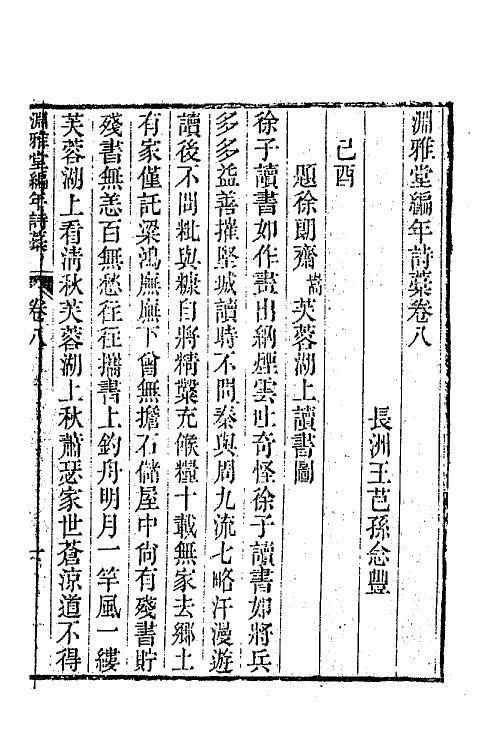 淵雅堂編年詩藁卷八
長洲王芑孫念豐
己酉
題徐朗齋嵩芙蓉湖上讀書圖
徐子讀書如作畫出納煙雲吐奇怪徐子讀書如將兵
多多益善摧堅城讀時不問秦與周九流七略汗漫遊
讀後不問粃與糠自將精鑿充餱糧十載無家去鄉土
有家僅託梁鴻廡廡下曾無擔石儲屋中尙有殘書貯
殘書無恙百無愁往往攜書上釣舟明月一竿風一縷
芙蓉湖上看清秋芙蓉湖上秋蕭瑟家世蒼涼道不得
淵雅堂編年詩藁
卷八
一